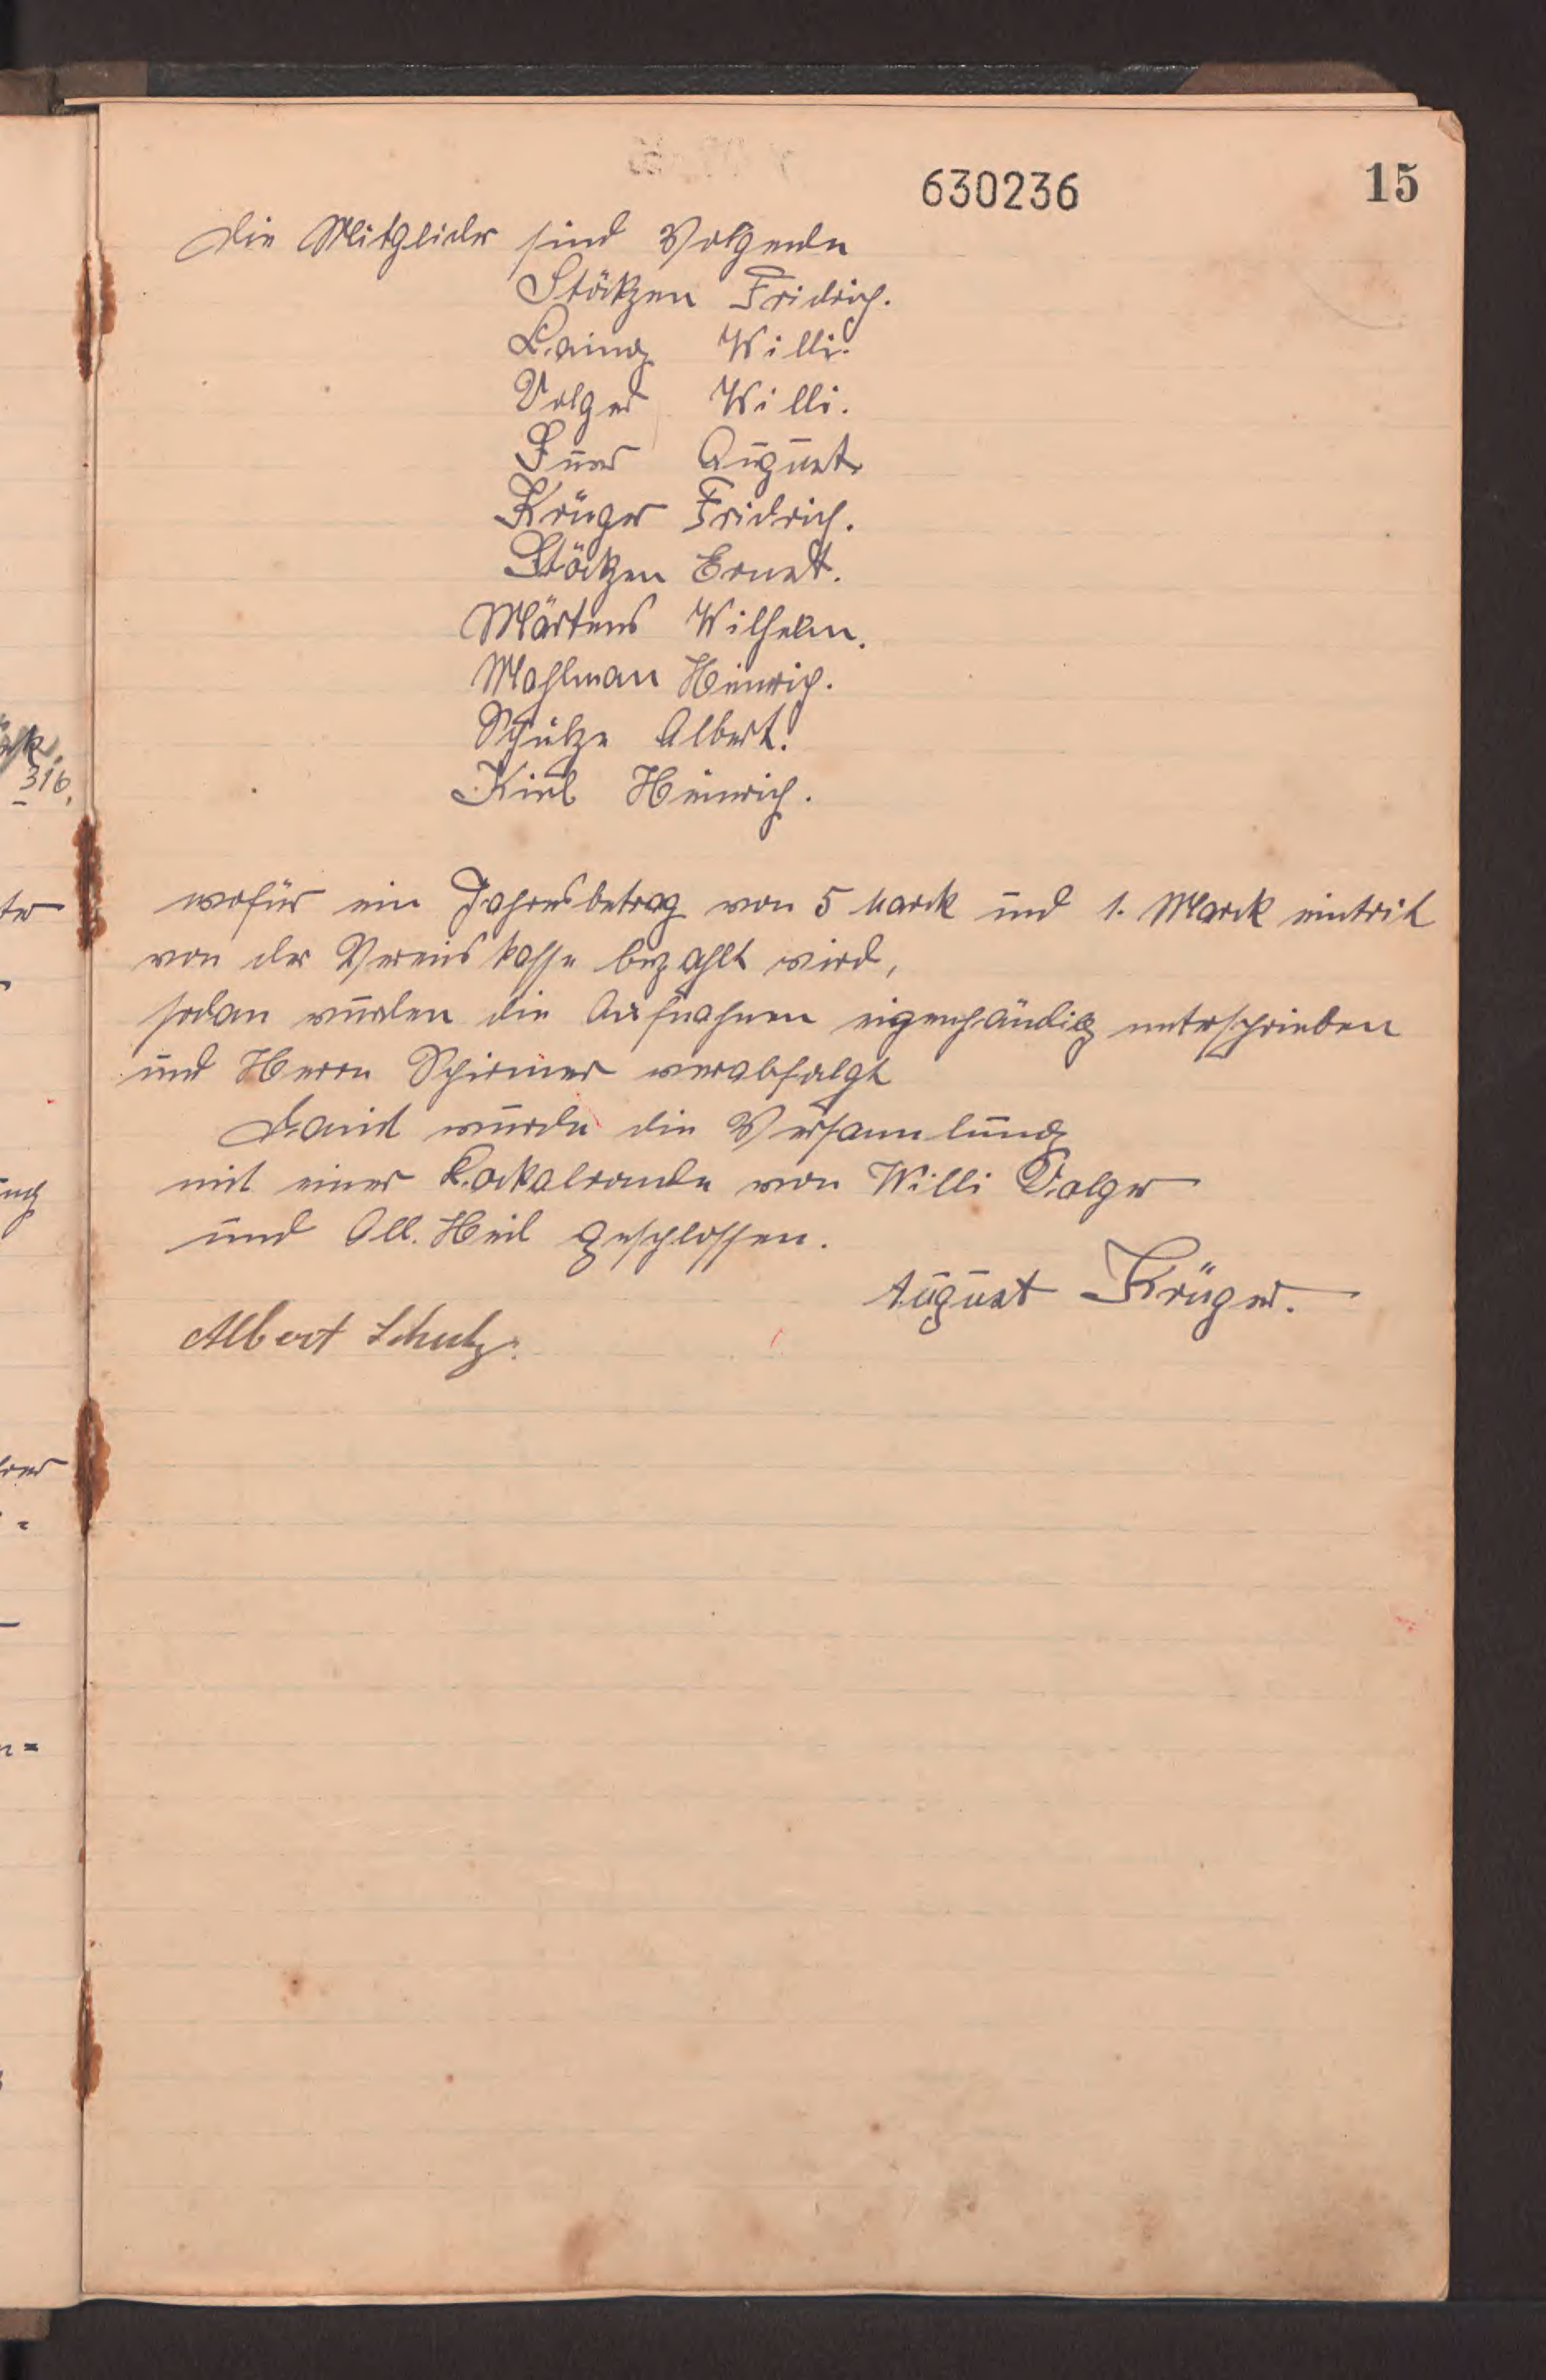 630236
15
Die Mitglider sind Volgende
Stöckzen Fridrich.
Laing Willi.
Volger Willi.
August
Krüger Fridrich.
Stöckzen Ernst.
Märtens Wilhelm.
Mahlman Heinrich.
Schulze Albert.
Kiel Heinrich.
wofür ein Jahresbetrag von 5 Marck und 1. Marck eintrit
von der Vereins kasse bezahlt wird,
sodan wurden die Aufnahmen eigenhändig unterschrieben
und Herrn Schirmer verabfolgt
Damit wurde die Versammlung
mit einer Lockalrunde von Willi Volger
und All. Heil geschlossen.
August Krüger.
Albert Schulz.
316.